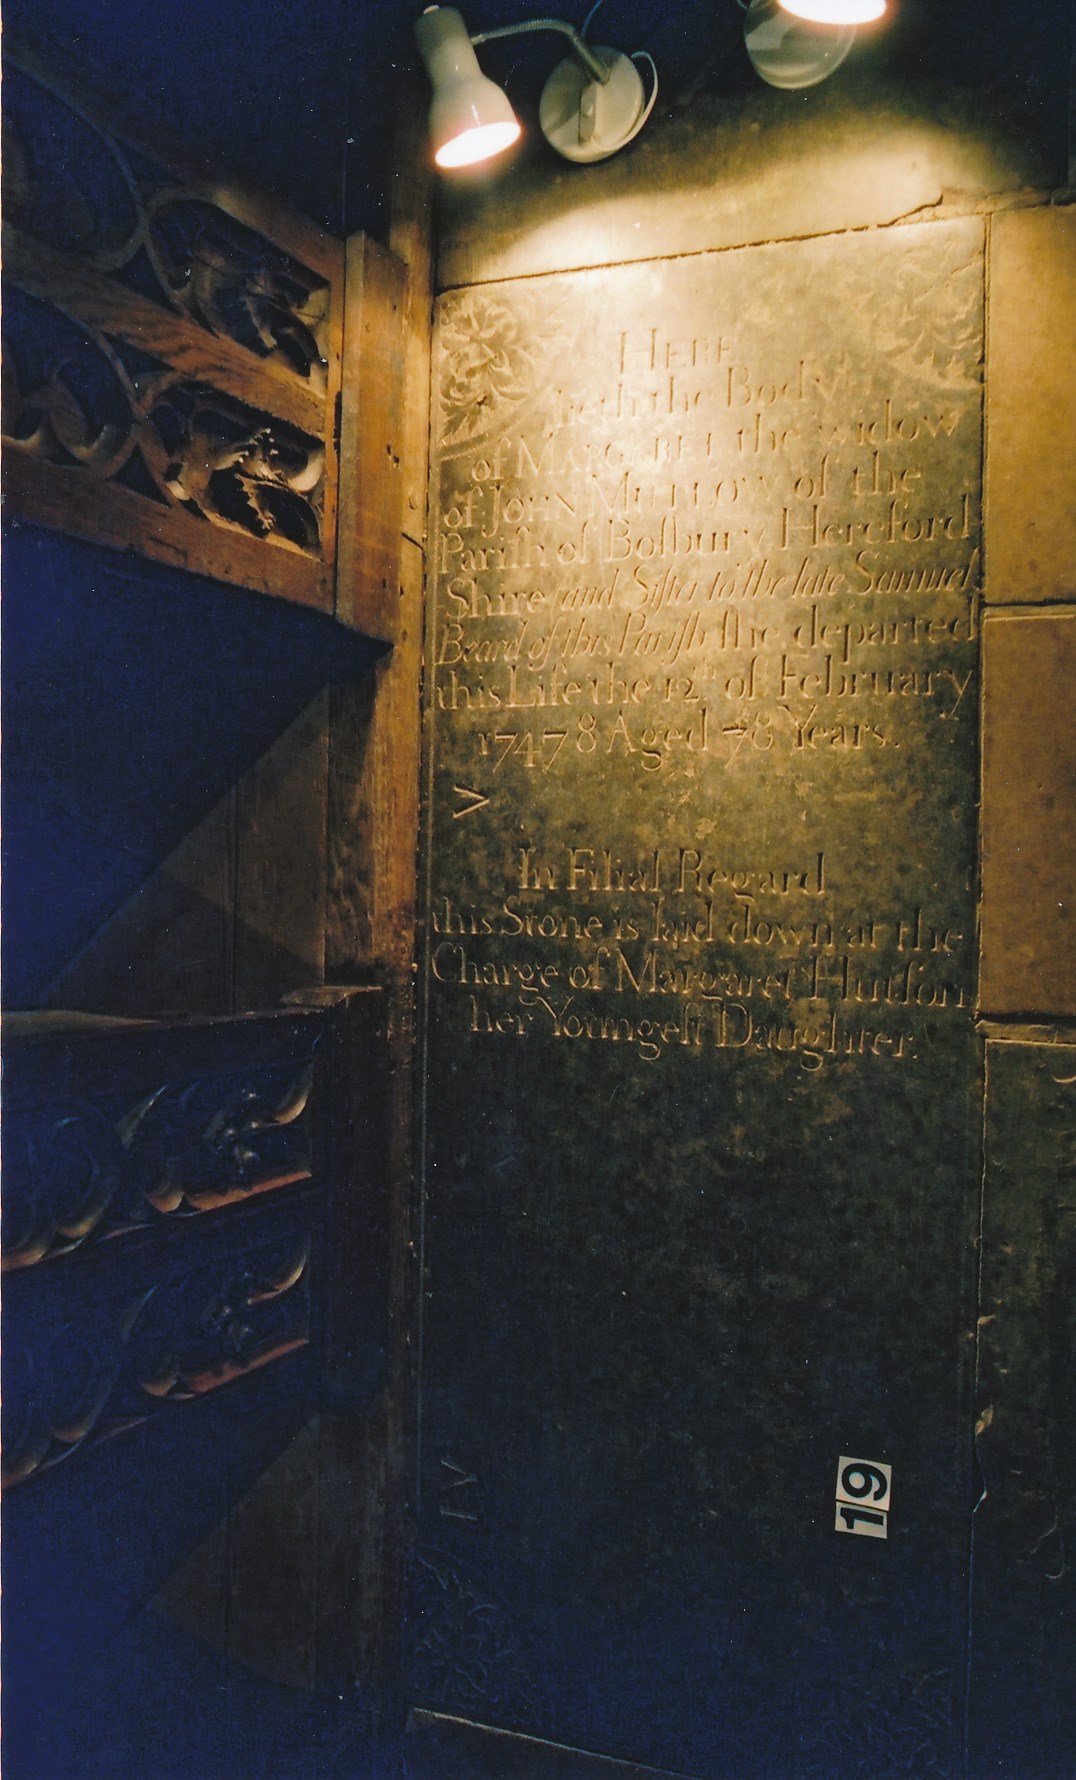 HERE
lieth the Body
of MARGARET the widow
of JOHN MULLOW of the
Pariſh of Boſbury Hereford
Shire and Siſter to the late Samuel
Beard of this Pariſh ſhe departed
this Life the 12th of February
17478 Aged 78 Years.
V
In Filial Regard
this Stone is laid down at the
Charge of Margaret Hutſon
her Youngeſt Daughter.
19